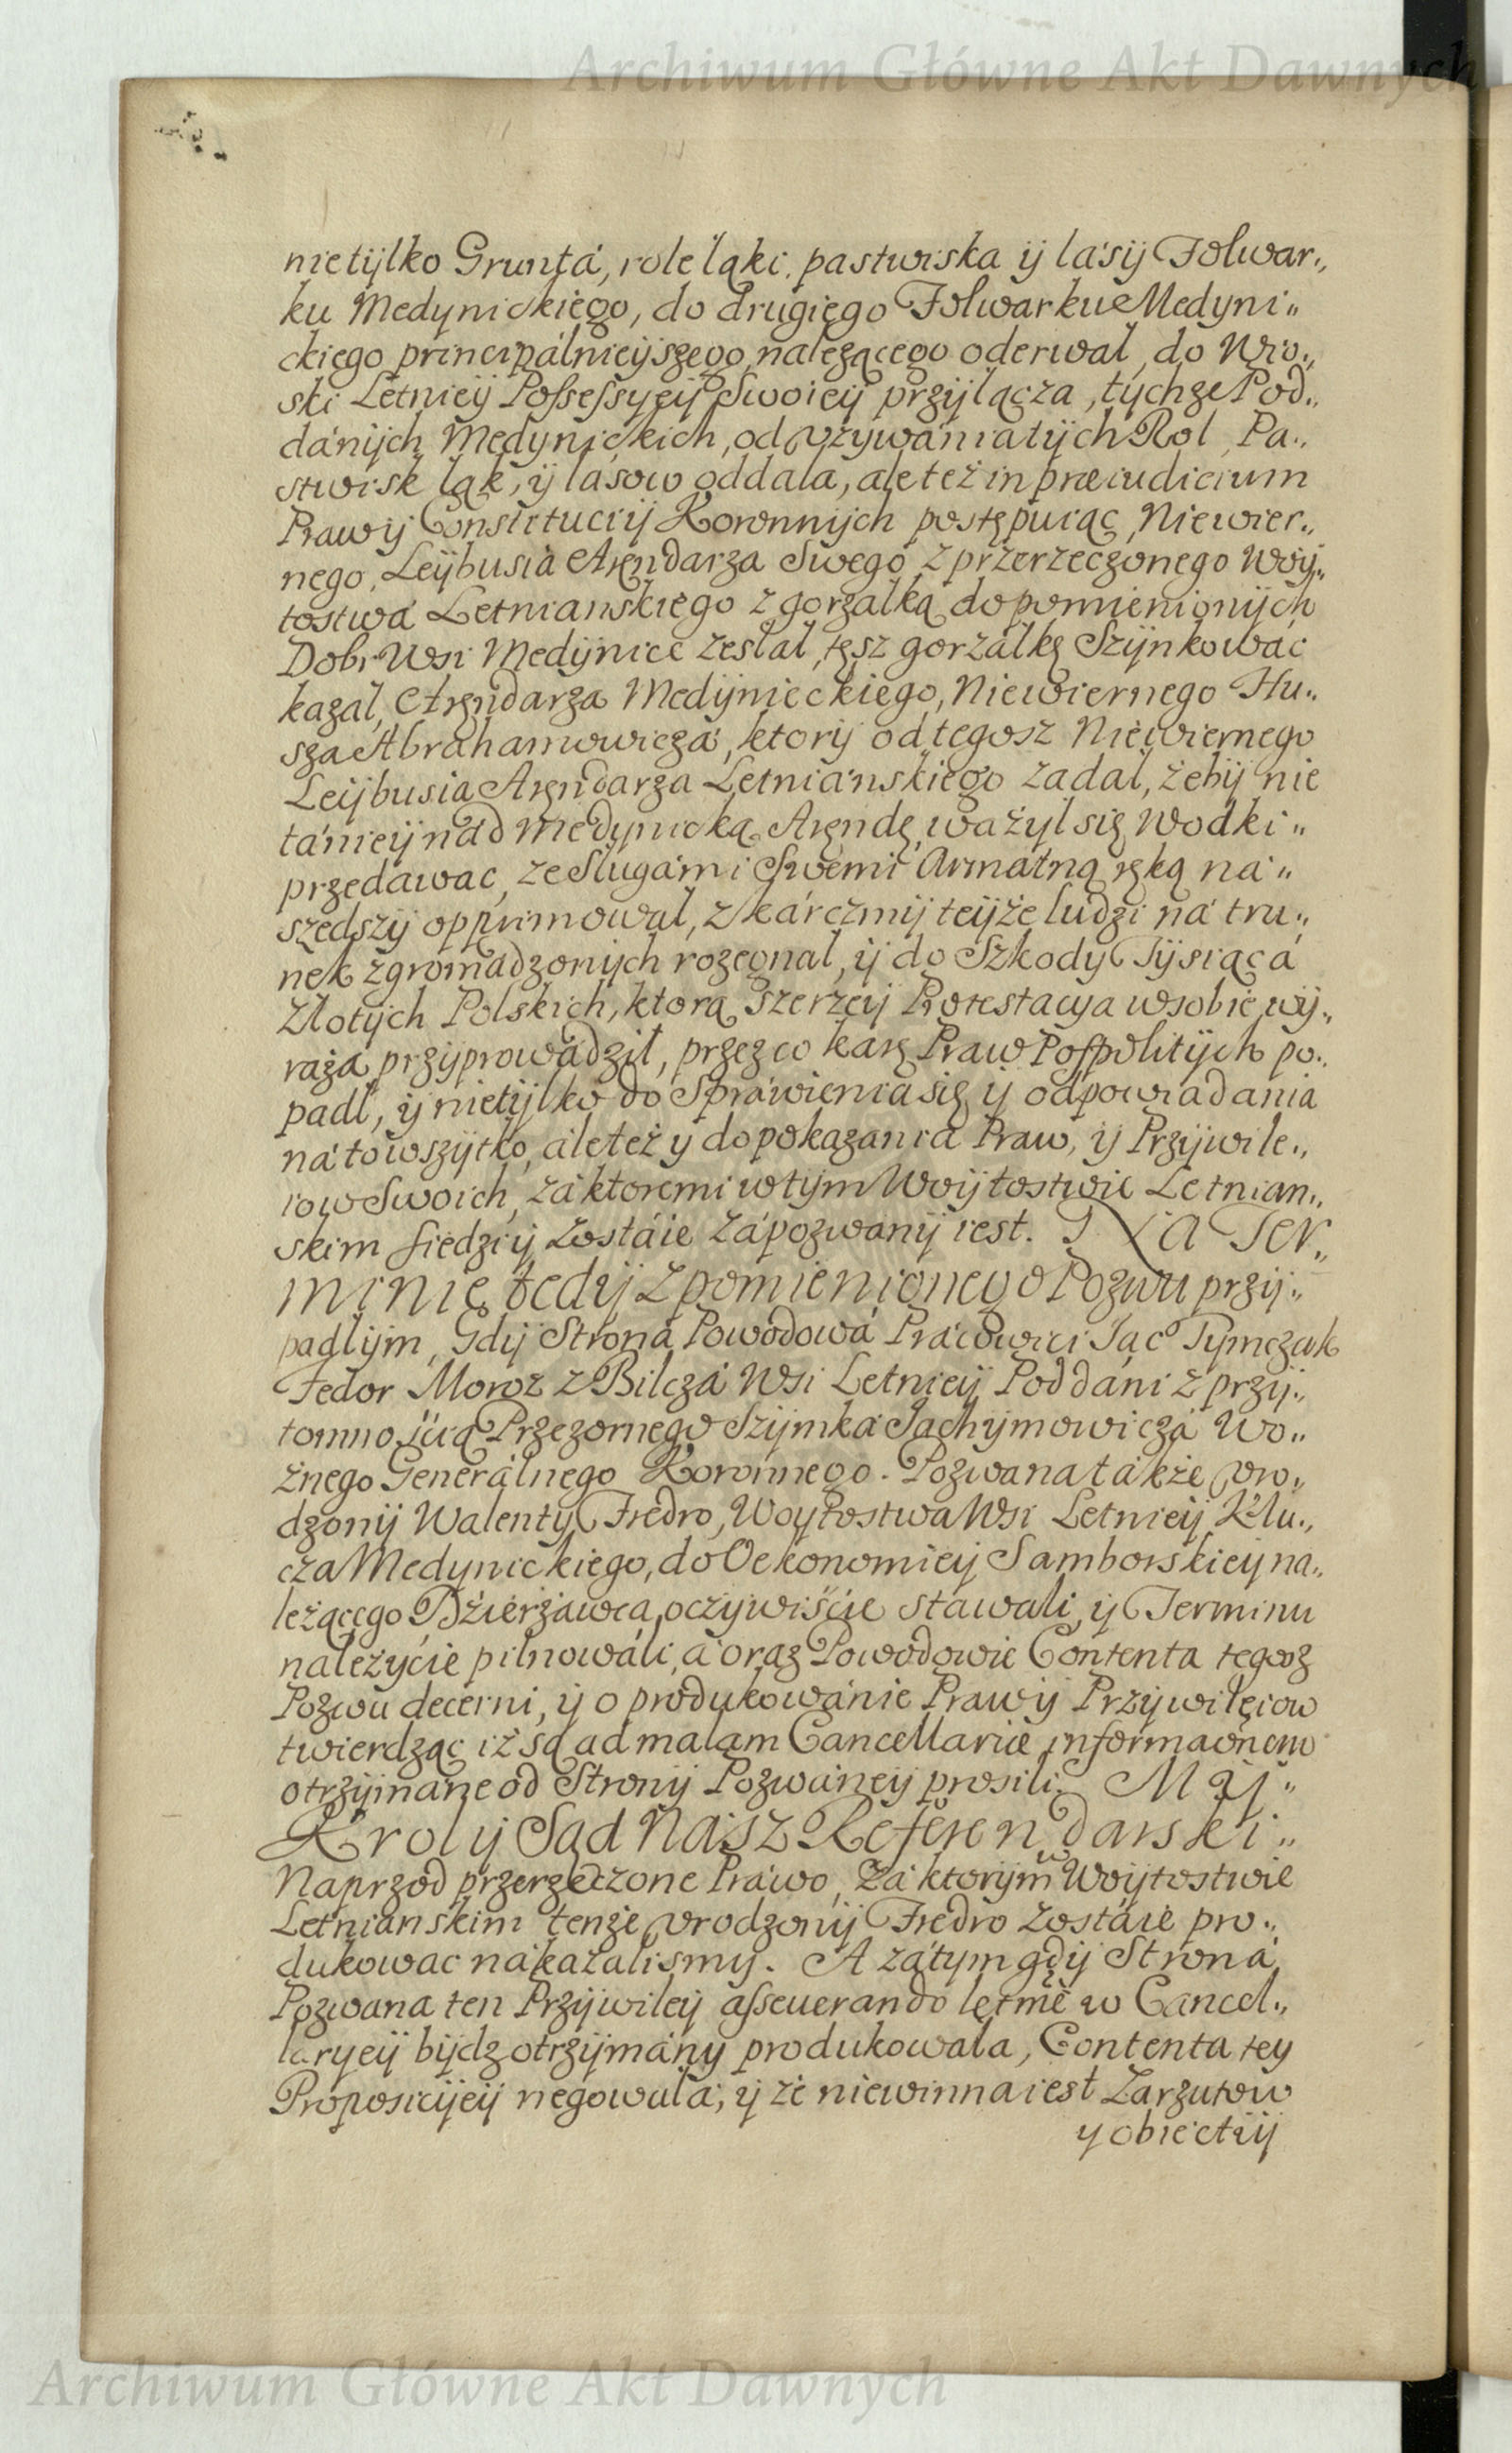 Archiwum Główne Akt Dawnych
nietylko Grunta, role łąki, pastwiska ÿ lasÿ Folwar„
ku Medynickiego, do drugiego Folwarku Medyni„
ckiego principalnieÿszego nalezącego oderwał, do Wio„
ski Letnieÿ Possessyeÿ Swoieÿ przÿłącza, tychze Pod„
danÿch Medynickich, od vzywania tÿch Rol, Pa„
stwisk łąk, ÿ lasow oddala, ale też in præiudicium
Praw ÿ Constituciÿ Koronnÿch postępuiąc, Niewier„
nego, Leÿbusia Arendarza Swego z przerzeczonego Woÿ„
tostwa Letnianskiego z gorzałką do pomienionÿch
Dobr Wsi Medÿnice zesłał, tęsz gorzałkę Szÿnkować
kazał, Arendarza Medÿnieckiego, Niewiernego Hu„
sza Abrahamowicza, ktorÿ od tegosz Niewiernego
Leÿbusia Arendarza Letnianskiego żadał, żebÿ nie
tanieÿ nad Medynicką Arendę ważÿł się Wodki„
przedawac, ze Sługami Swemi Armatną ręką na„
szedszÿ opprimował, z karczmÿ teÿże ludzi na tru„
nek zgromadzonÿch rozegnał, ÿ do Szkody Tÿsiąca
Złotÿch Polskich, ktorą szerzeÿ Protestacya w sobie wÿ„
raża przÿprowadził, przez co karę Praw Pospolitÿch po„
padł, ÿ nietÿlko do Sprawienia się ÿ odpowiadania
na to wszÿtko, ale też y do pokazania Praw, ÿ Przÿwile„
iow Swoich, za ktoremi w tÿm Woÿtostwie Letnian„
skim siedzi ÿ zostaie zapozwanÿ iest. Na Ter„
minie tedÿ z pomienionego Pozwu przÿ„
padłÿm, Gdÿ Strona Powodowa Pracowici Jac° Tymczuk
Fedor Moroz z Bilcza Wsi Letnieÿ Poddani z przÿ„
tomnością Przezornego Szÿmka Jachÿmowicza Wo„
źnego Generalnego Koronnego. Pozwana także vro„
dzonÿ Walentÿ Fredro, Woÿtostwa Wsi Letnieÿ Klu„
cza Medynickiego, do Oekonomieÿ Samborskieÿ na„
leżącego Dźierżawca oczÿwiście stawali, ÿ Terminu
należÿcie pilnowali, a oraz Powodowie Contenta tegoz
Pozwu decerni, ÿ o produkowanie Praw ÿ Przÿwileiow
twierdząc iż są ad malam Cancellariæ informaonem
otrzÿmane od Stronÿ Pozwaneÿ prosili. Mÿ„
Krol ÿ Sąd Nasz Referendarski„
Naprzod przerzeczone Prawo, za ktorÿm w Woÿtostwie
Letnianskim tenże vrodzonÿ Fredro zostaie pro„
dukowac nakazalismÿ. A zatym gdÿ Strona
Pozwana ten Przÿwileÿ asseuerando letmè w Cancel„
laryeÿ bÿdz otrzÿmanÿ produkowała, Contenta tey
Proposicÿeÿ negowała, ÿ że niewinna iest Zarzutow
y obiectiÿ
Archiwum Główne Akt Dawnych